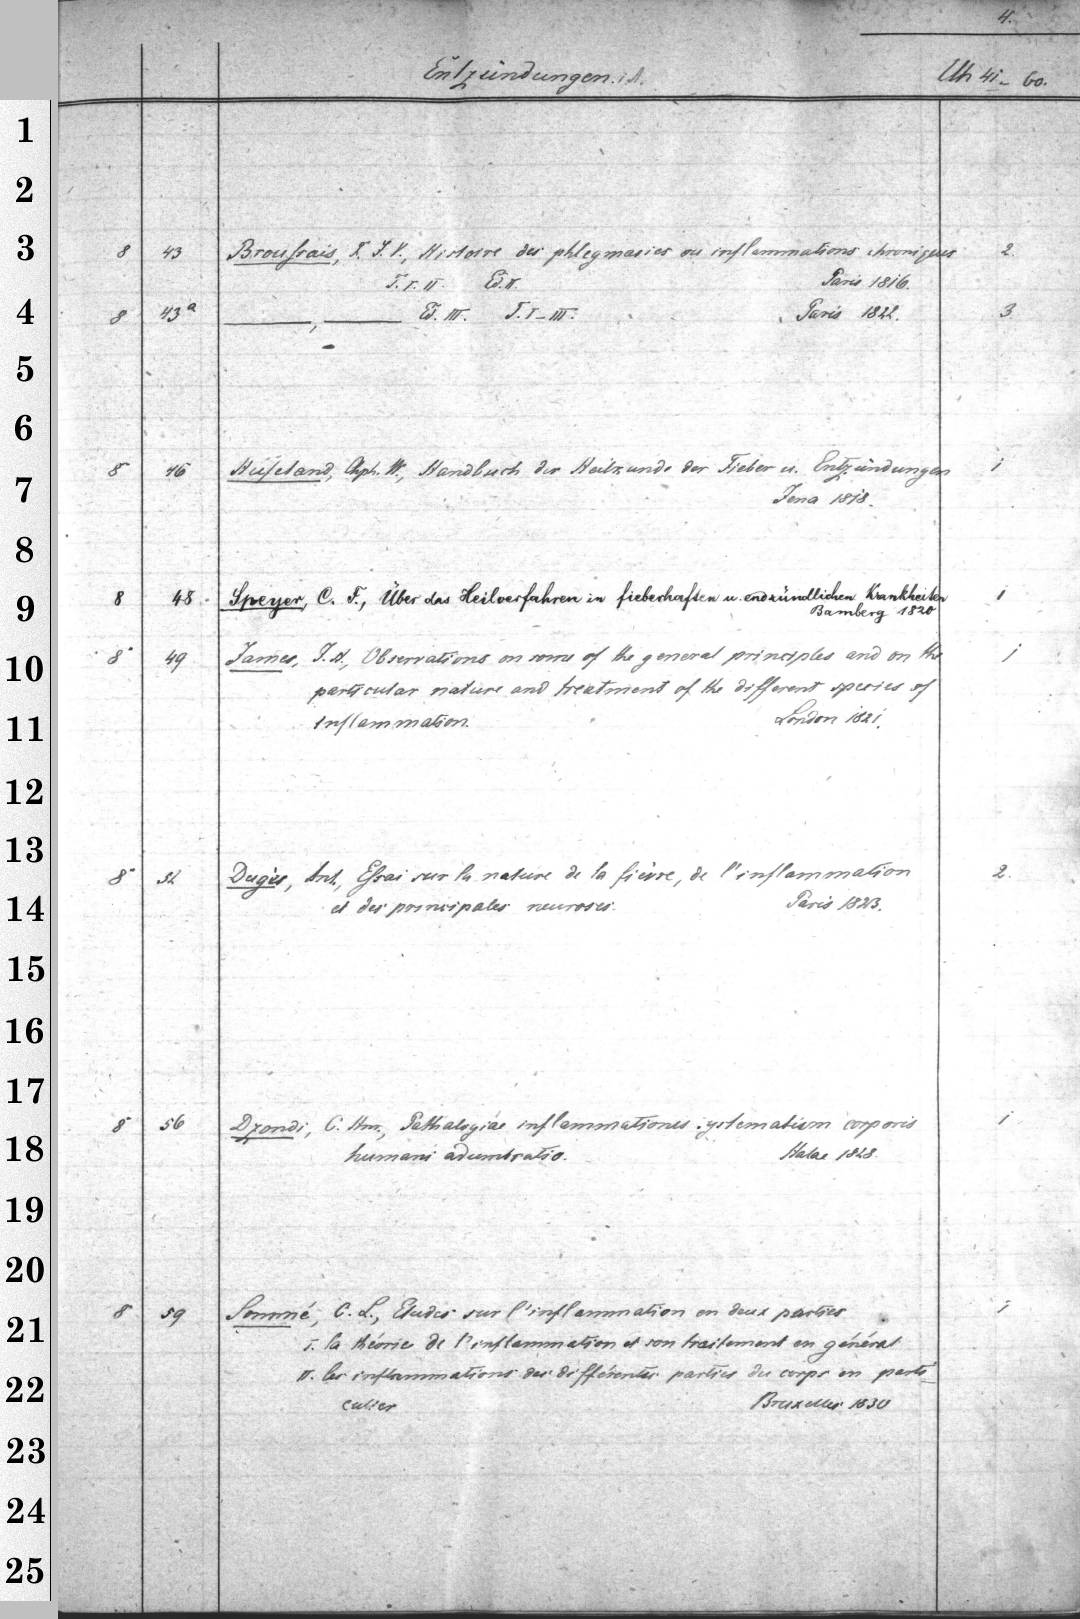 4.
Entzündungen. A. Uh 41-60.
1
2
3 8 43 Broussais, F. J. V., Histoire des phlegmasies ou inflammations chroniques 2.
T. I. II. Ed. II. Paris 1816.
4 8 43a ———, ——— Ed. III. T. I-III. Paris 1822. 3
5
6
8 46 Hufeland, Chph. W., Handbuch der Heilkunde der Fieber u. Entzündungen 1
7 Jena 1818.
8
9 8 48 Speyer, C. F., Über das Heilverfahren in fieberhaften u. endzündlichen Krankheiten 1
Bamberg 1820
10 8 49 James, J. H., Observations on some of the general principles and on the 1
particular nature and treatment of the different species of
11 inflammation. London 1821.
12
13
8 52 Dugès, Ant., Essai sur la nature de la fièvre, de l'inflammation 2.
14 et des principales neuroses. Paris 1823.
15
16
17
8 56 Dzondi, C. Hm., Pathalogiae inflammationes systematum corporis 1
18 humani adumbratio. Halae 1828.
19
20
8 59 Sommé, C. L., Etudes sur l'inflammation en deux parties 1
21 I. la théorie de l'inflammation et son traitement en général
22 II. les inflammations des différentes parties du corps en parti-
culier Bruxelles 1830
23
24
25